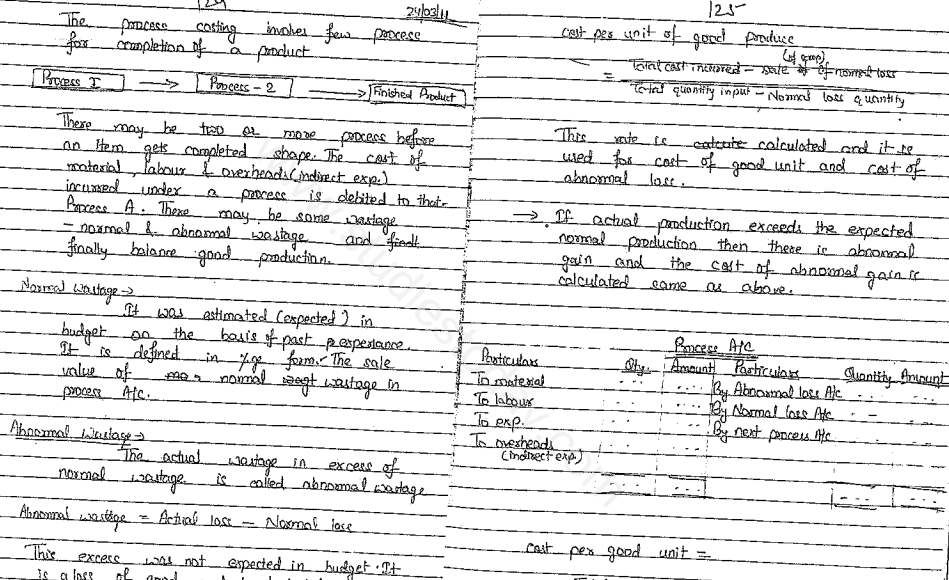 124
24/03/11
The process costing involves few process
for completion of a product
Process I → Process - 2 → Finished Product
There may be two or more process before
an item gets completed shape. The cost of
material, labour & overheads (indirect exp.)
incurred under a process is debited to that
Process A. There may be some wastage
- normal & abnormal wastage and
finally balance good production.
Normal Wastage →
It was estimated (expected) in
budget on the basis of past experience.
It is defined in %ge form. The sale
value of normal wastage in
process A/c.
Abnormal Wastage →
The actual wastage in excess of
normal wastage is called abnormal wastage
Abnormal wastage = Actual loss - Normal loss
This excess was not expected in budget. It
is a loss of
125
cost per unit of good produce
= Total cost incurred - sale (of scrap) of normal loss
Total quantity input - Normal loss quantity
This rate is calculated and it is
used for cost of good unit and cost of
abnormal loss.
→ If actual production exceeds the expected
normal production then there is abnormal
gain and the cost of abnormal gain is
calculated same as above.
Process A/C
Particulars Qty. Amount Particulars Quantity Amount
To material By Abnormal loss A/c
To labour By Normal loss A/c
To exp. By next process A/c
To overheads
(indirect exp.)
cost per good unit =